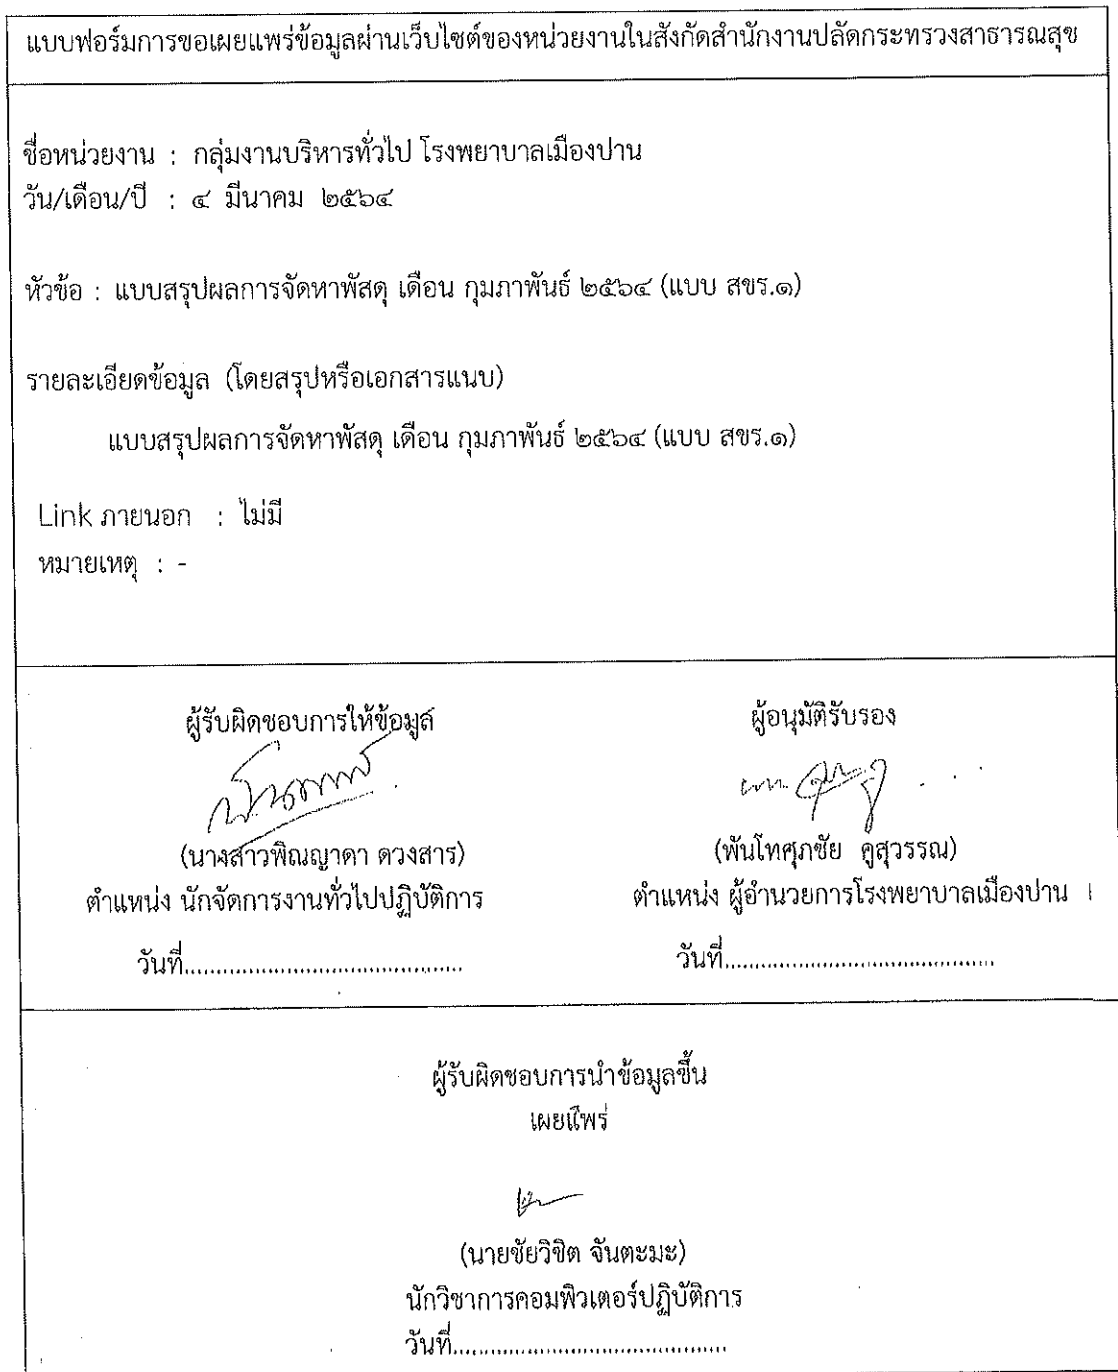 แบบฟอร์มการขอเผยแพร่ข้อมูลผ่านเว็บไซต์ของหน่วยงานในสังกัดสำนักงานปลัดกระทรวงสาธารณสุข
ชื่อหน่วยงาน : กลุ่มงานบริหารทั่วไป โรงพยาบาลเมืองปาน
วัน/เดือน/ปี : ๔ มีนาคม ๒๕๖๔
หัวข้อ : แบบสรุปผลการจัดหาพัสดุ เดือน กุมภาพันธ์ ๒๕๖๔ (แบบ สขร.๑)
รายละเอียดข้อมูล (โดยสรุปหรือเอกสารแนบ)
แบบสรุปผลการจัดหาพัสดุ เดือน กุมภาพันธ์ ๒๕๖๔ (แบบ สขร.๑)
Link ภายนอก : ไม่มี
หมายเหตุ : -
ผู้รับผิดชอบการให้ข้อมูล
(นางสาวพิณญาดา ดวงสาร)
ตำแหน่ง นักจัดการงานทั่วไปปฏิบัติการ
วันที่............................................
ผู้อนุมัติรับรอง
(พันโทศุภชัย คูสุวรรณ)
ตำแหน่ง ผู้อำนวยการโรงพยาบาลเมืองปาน
วันที่............................................
ผู้รับผิดชอบการนำข้อมูลขึ้น
เผยแพร่
(นายชัยวิชิต จันตะมะ)
นักวิชาการคอมพิวเตอร์ปฏิบัติการ
วันที่............................................